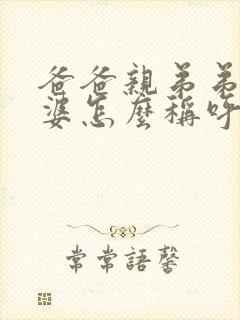 爸爸親弟弟
婆怎麼稱呼
常常語馨